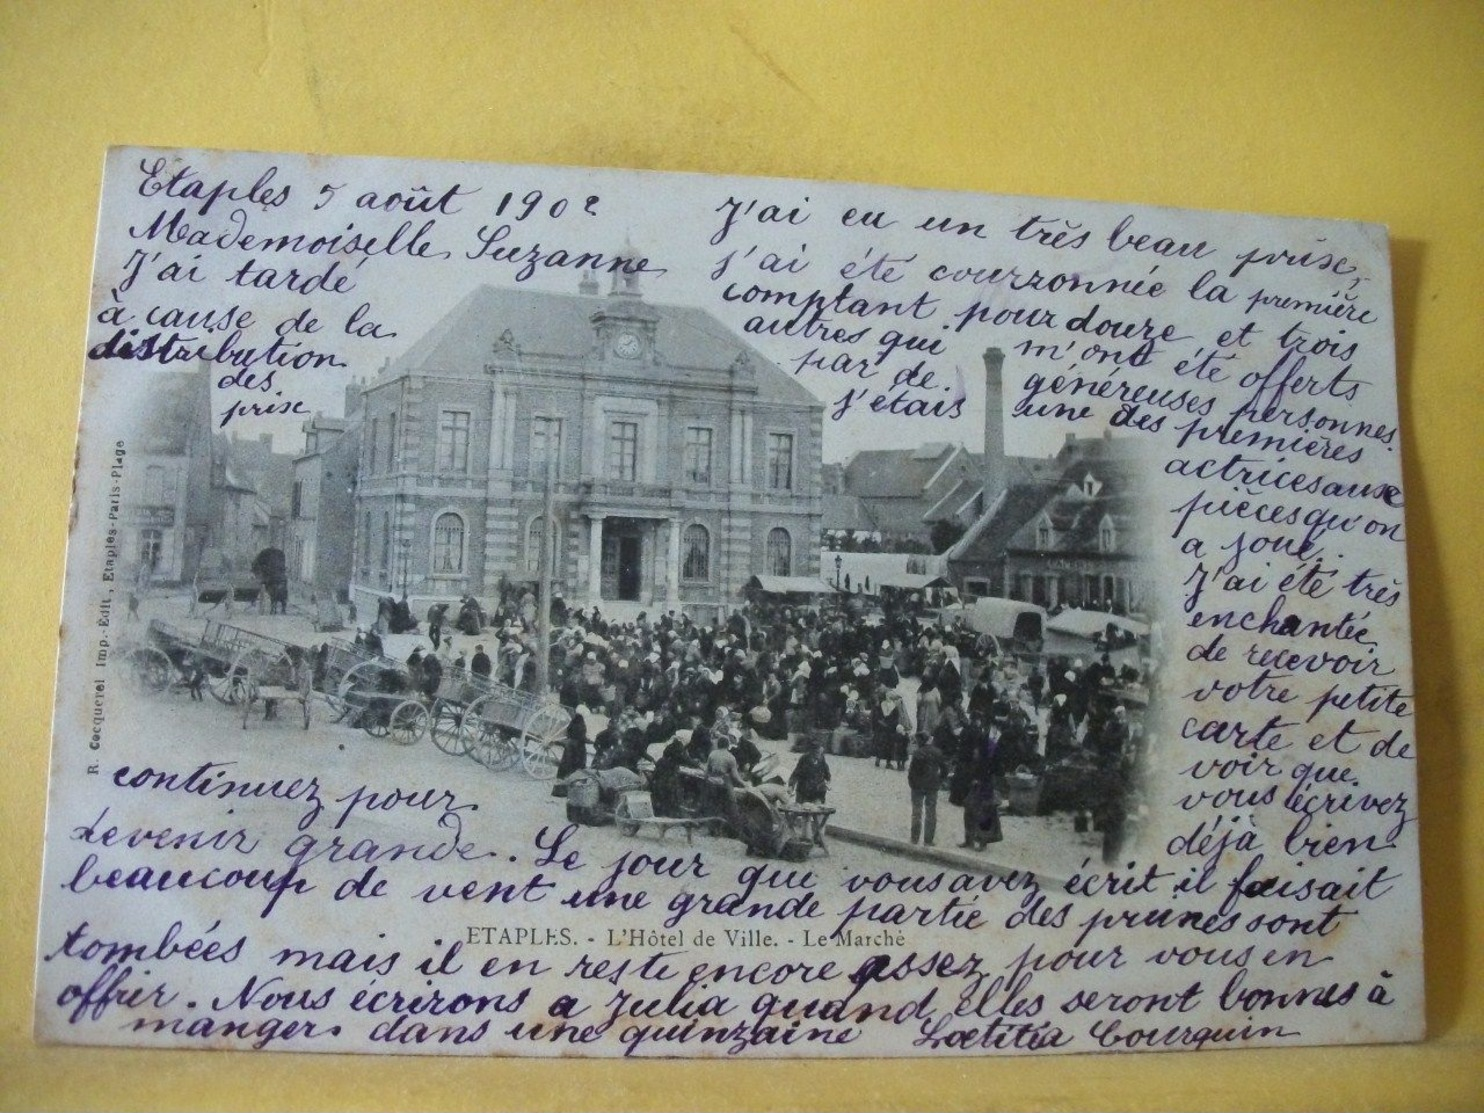 Etaples 5 août 1902
Mademoiselle Suzanne
J'ai tardé
à cause de la
distribution
des
prix
J'ai eu un très beau prix,
j'ai été courronnée la première
comptant pour douze et trois
autres qui m'ont été offerts
par de généreuses personnes
j'étais une des premières
actrices aux
pièces qu'on
a joué.
J'ai été très
enchantée
de recevoir
votre petite
carte et de
voir que
vous écrivez
déjà bien
continuez pour
devenir grande. Le jour que vous avez écrit il faisait
beaucoup de vent une grande partie des prunes sont
tombées mais il en reste encore assez pour vous en
offrir. Nous écrirons a Julia quand elles seront bonnes à
manger. dans une quinzaine Lœtitia Courquin
ETAPLES. - L'Hôtel de Ville. - Le Marché
R. Cocquerel Imp.-Edit., Etaples-Paris-Plage